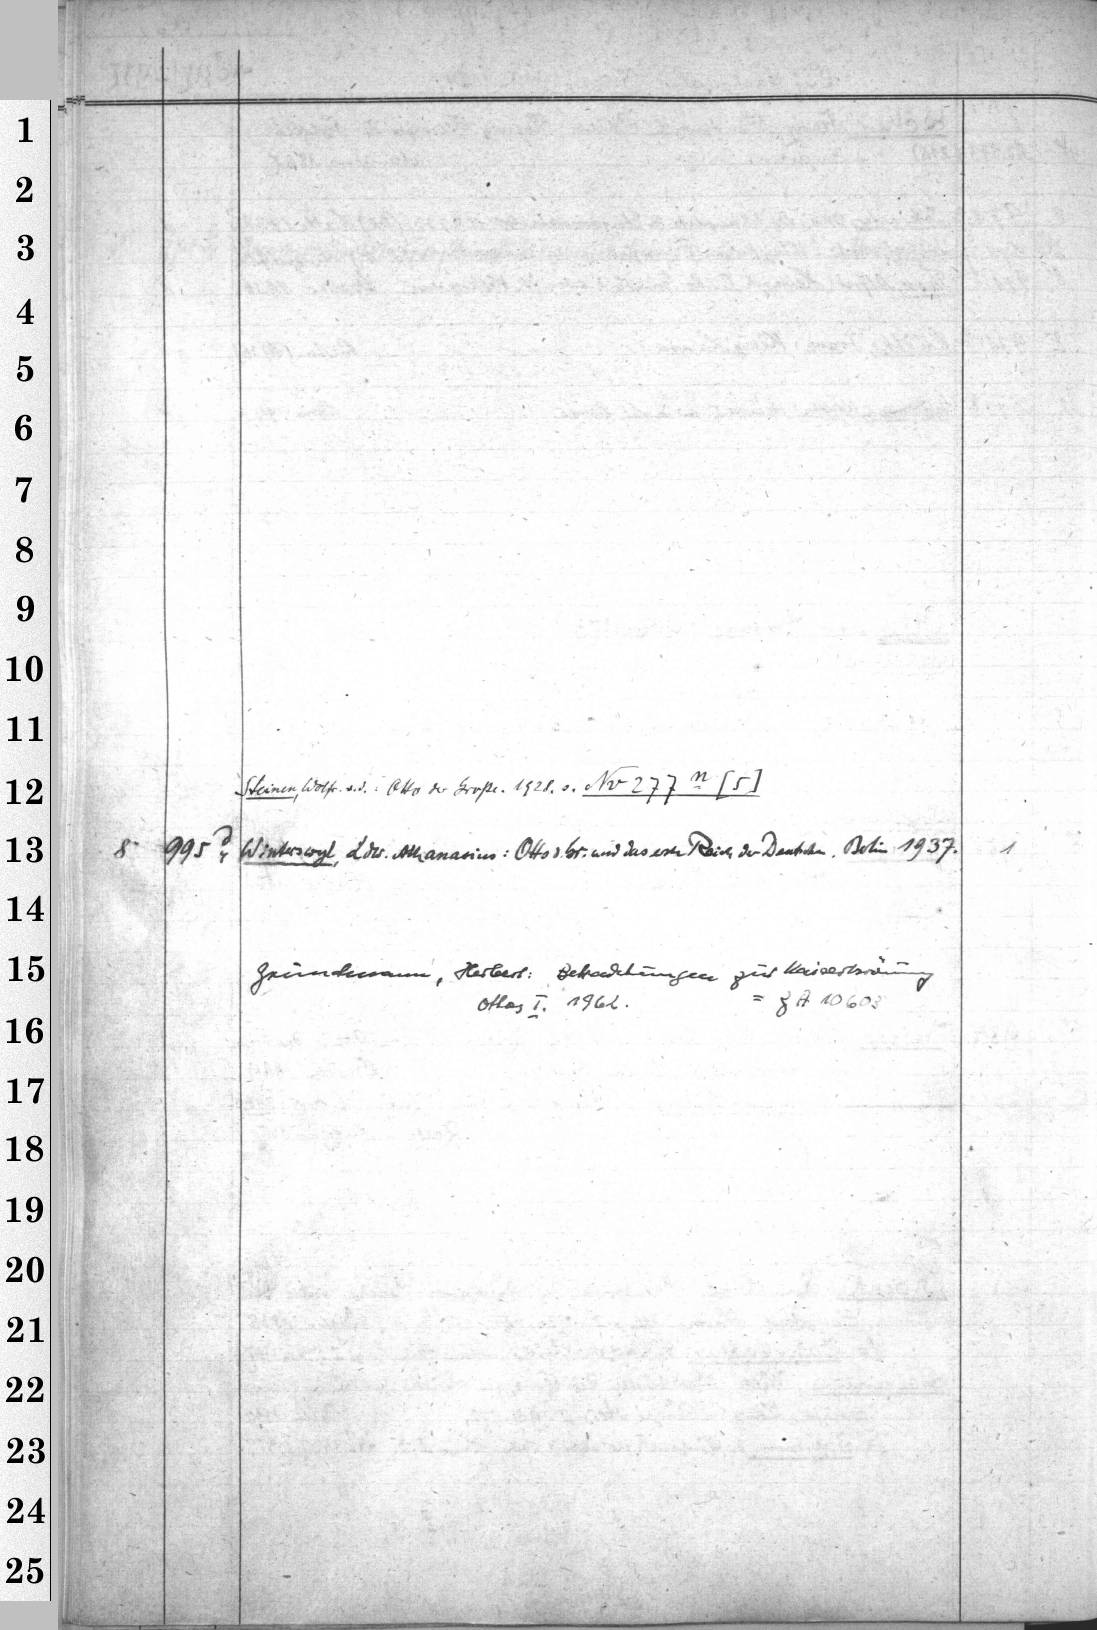 1
2
3
4
5
6
7
8
9
10
11
12 Steinen, Wolfr. v. d.: Otto der Große. 1928. s. Nv 277 n [5]
13 8° 995 Winterswyl, Ldw. Athanasius: Otto d. Gr. und das erste Reich der Deutschen. Berlin 1937. 1
14
15 Grundmann, Herbert: Betrachtungen zur Kaiserkrönung
Ottos I. 1962. = ZA 10603
16
17
18
19
20
21
22
23
24
25